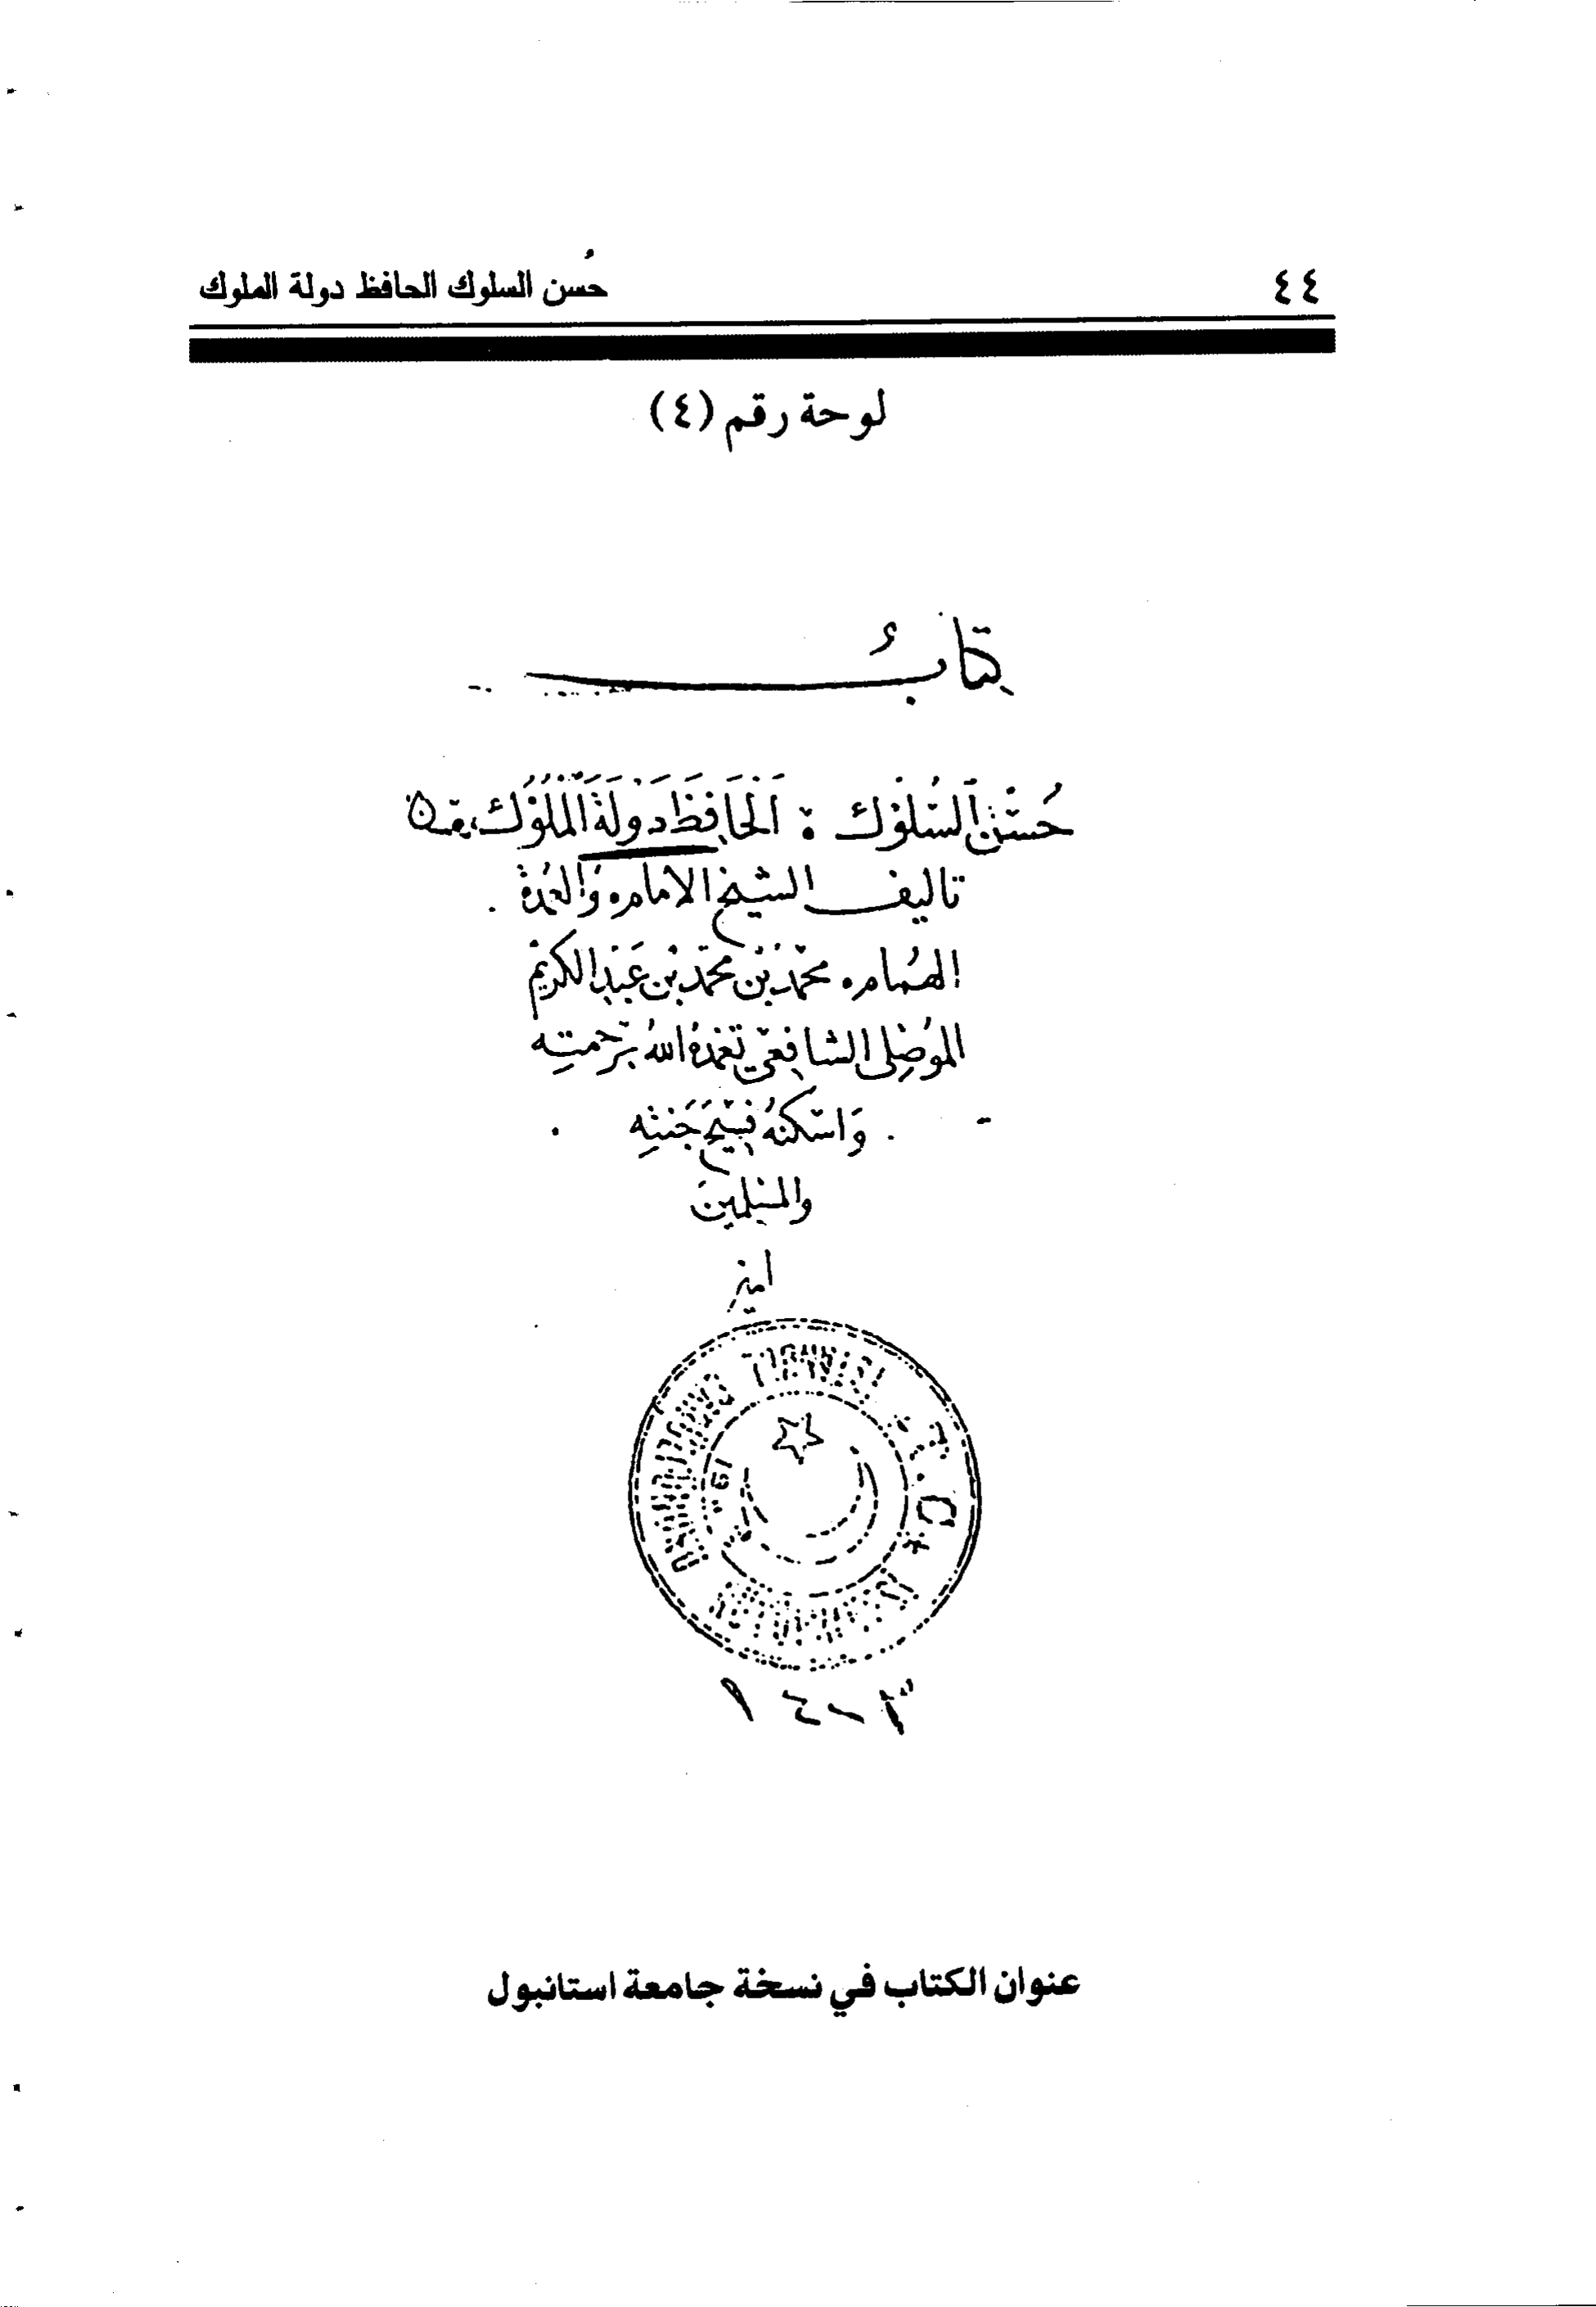 ٤٤
حُسن السلوك الحافظ دولة الملوك
لوحة رقم (٤)
كتابُ
حُسْنُ السُّلُوْك : اَلْحَافِظ دَوْلَةَ الْمُلُوْك
تاليف الشيخ الامام والعمدة
الهُمام محمَّد بْن محمَّد بْن عَبْدِ الكريْم
الموْصِلى الشافعيّ تغمدهُ اللهُ برَحْمَتِه
وَاسْكنهُ فسِيْحَ جَنتِه
والمسْلِمِينَ
امين
T.C.
عنوان الكتاب في نسخة جامعة استانبول